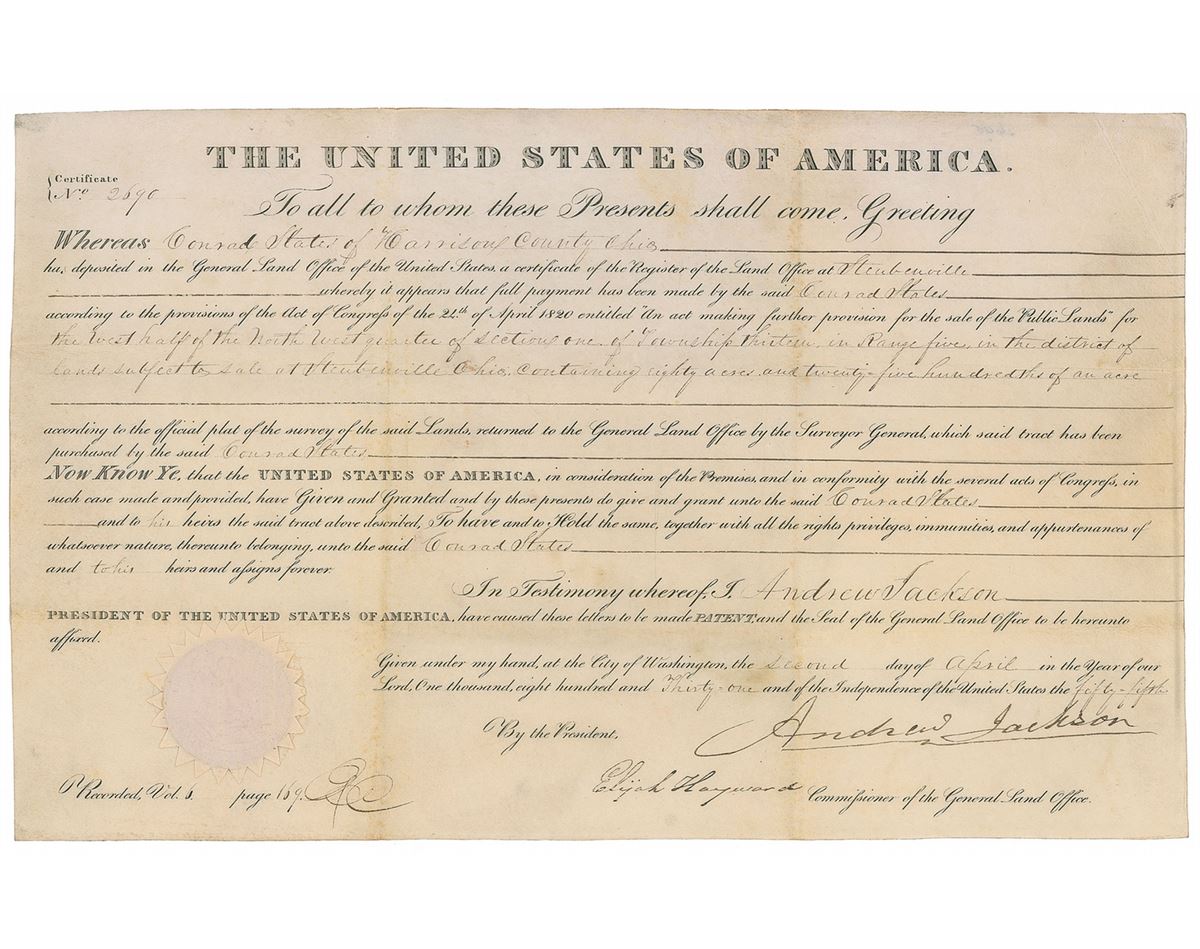 THE UNITED STATES OF AMERICA.
Certificate
No. 2690
To all to whom these Presents shall come, Greeting
Whereas Conrad States of Harrison County Ohio
has deposited in the General Land Office of the United States, a certificate of the Register of the Land Office at Steubenville
whereby it appears that full payment has been made by the said Conrad States
according to the provisions of the Act of Congress of the 24th of April 1820 entitled "An act making further provision for the sale of the Public Lands" for
the West half of the North West quarter of Section one, of Township thirteen, in Range five, in the district of
lands subject to sale at Steubenville Ohio, containing eighty acres and twenty-five hundredths of an acre
according to the official plat of the survey of the said Lands, returned to the General Land Office by the Surveyor General, which said tract has been
purchased by the said Conrad States
Now Know Ye, that the UNITED STATES OF AMERICA, in consideration of the Premises, and in conformity with the several acts of Congress, in
such case made and provided, have Given and Granted and by these presents do give and grant unto the said Conrad States
and to his heirs the said tract above described, To have and to Hold the same, together with all the rights privileges, immunities, and appurtenances of
whatsoever nature, thereunto belonging, unto the said Conrad States
and to his heirs and assigns forever.
In Testimony whereof, I, Andrew Jackson
PRESIDENT OF THE UNITED STATES OF AMERICA, have caused these letters to be made PATENT, and the Seal of the General Land Office to be hereunto
affixed.
Given under my hand, at the City of Washington, the second day of April in the Year of our
Lord, One thousand, eight hundred and Thirty-one and of the Independence of the United States the fifty-fifth
By the President, Andrew Jackson
Elijah Hayward Commissioner of the General Land Office.
Recorded, Vol. 6. page 169.